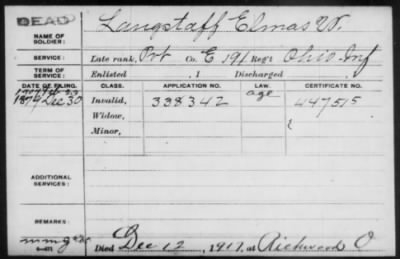 DEAD
NAME OF SOLDIER: Langstaff Elmas W.
SERVICE: Late rank, Pvt Co. E 191 Reg't Ohio Inf
TERM OF SERVICE: Enlisted , 1 Discharged
DATE OF FILING. CLASS. APPLICATION NO. LAW. CERTIFICATE NO.
age
1879 Dec 30 Invalid, 338342 447515
Widow,
Minor,
ADDITIONAL SERVICES:
REMARKS:
Died Dec 12, 1917, at Richwood O